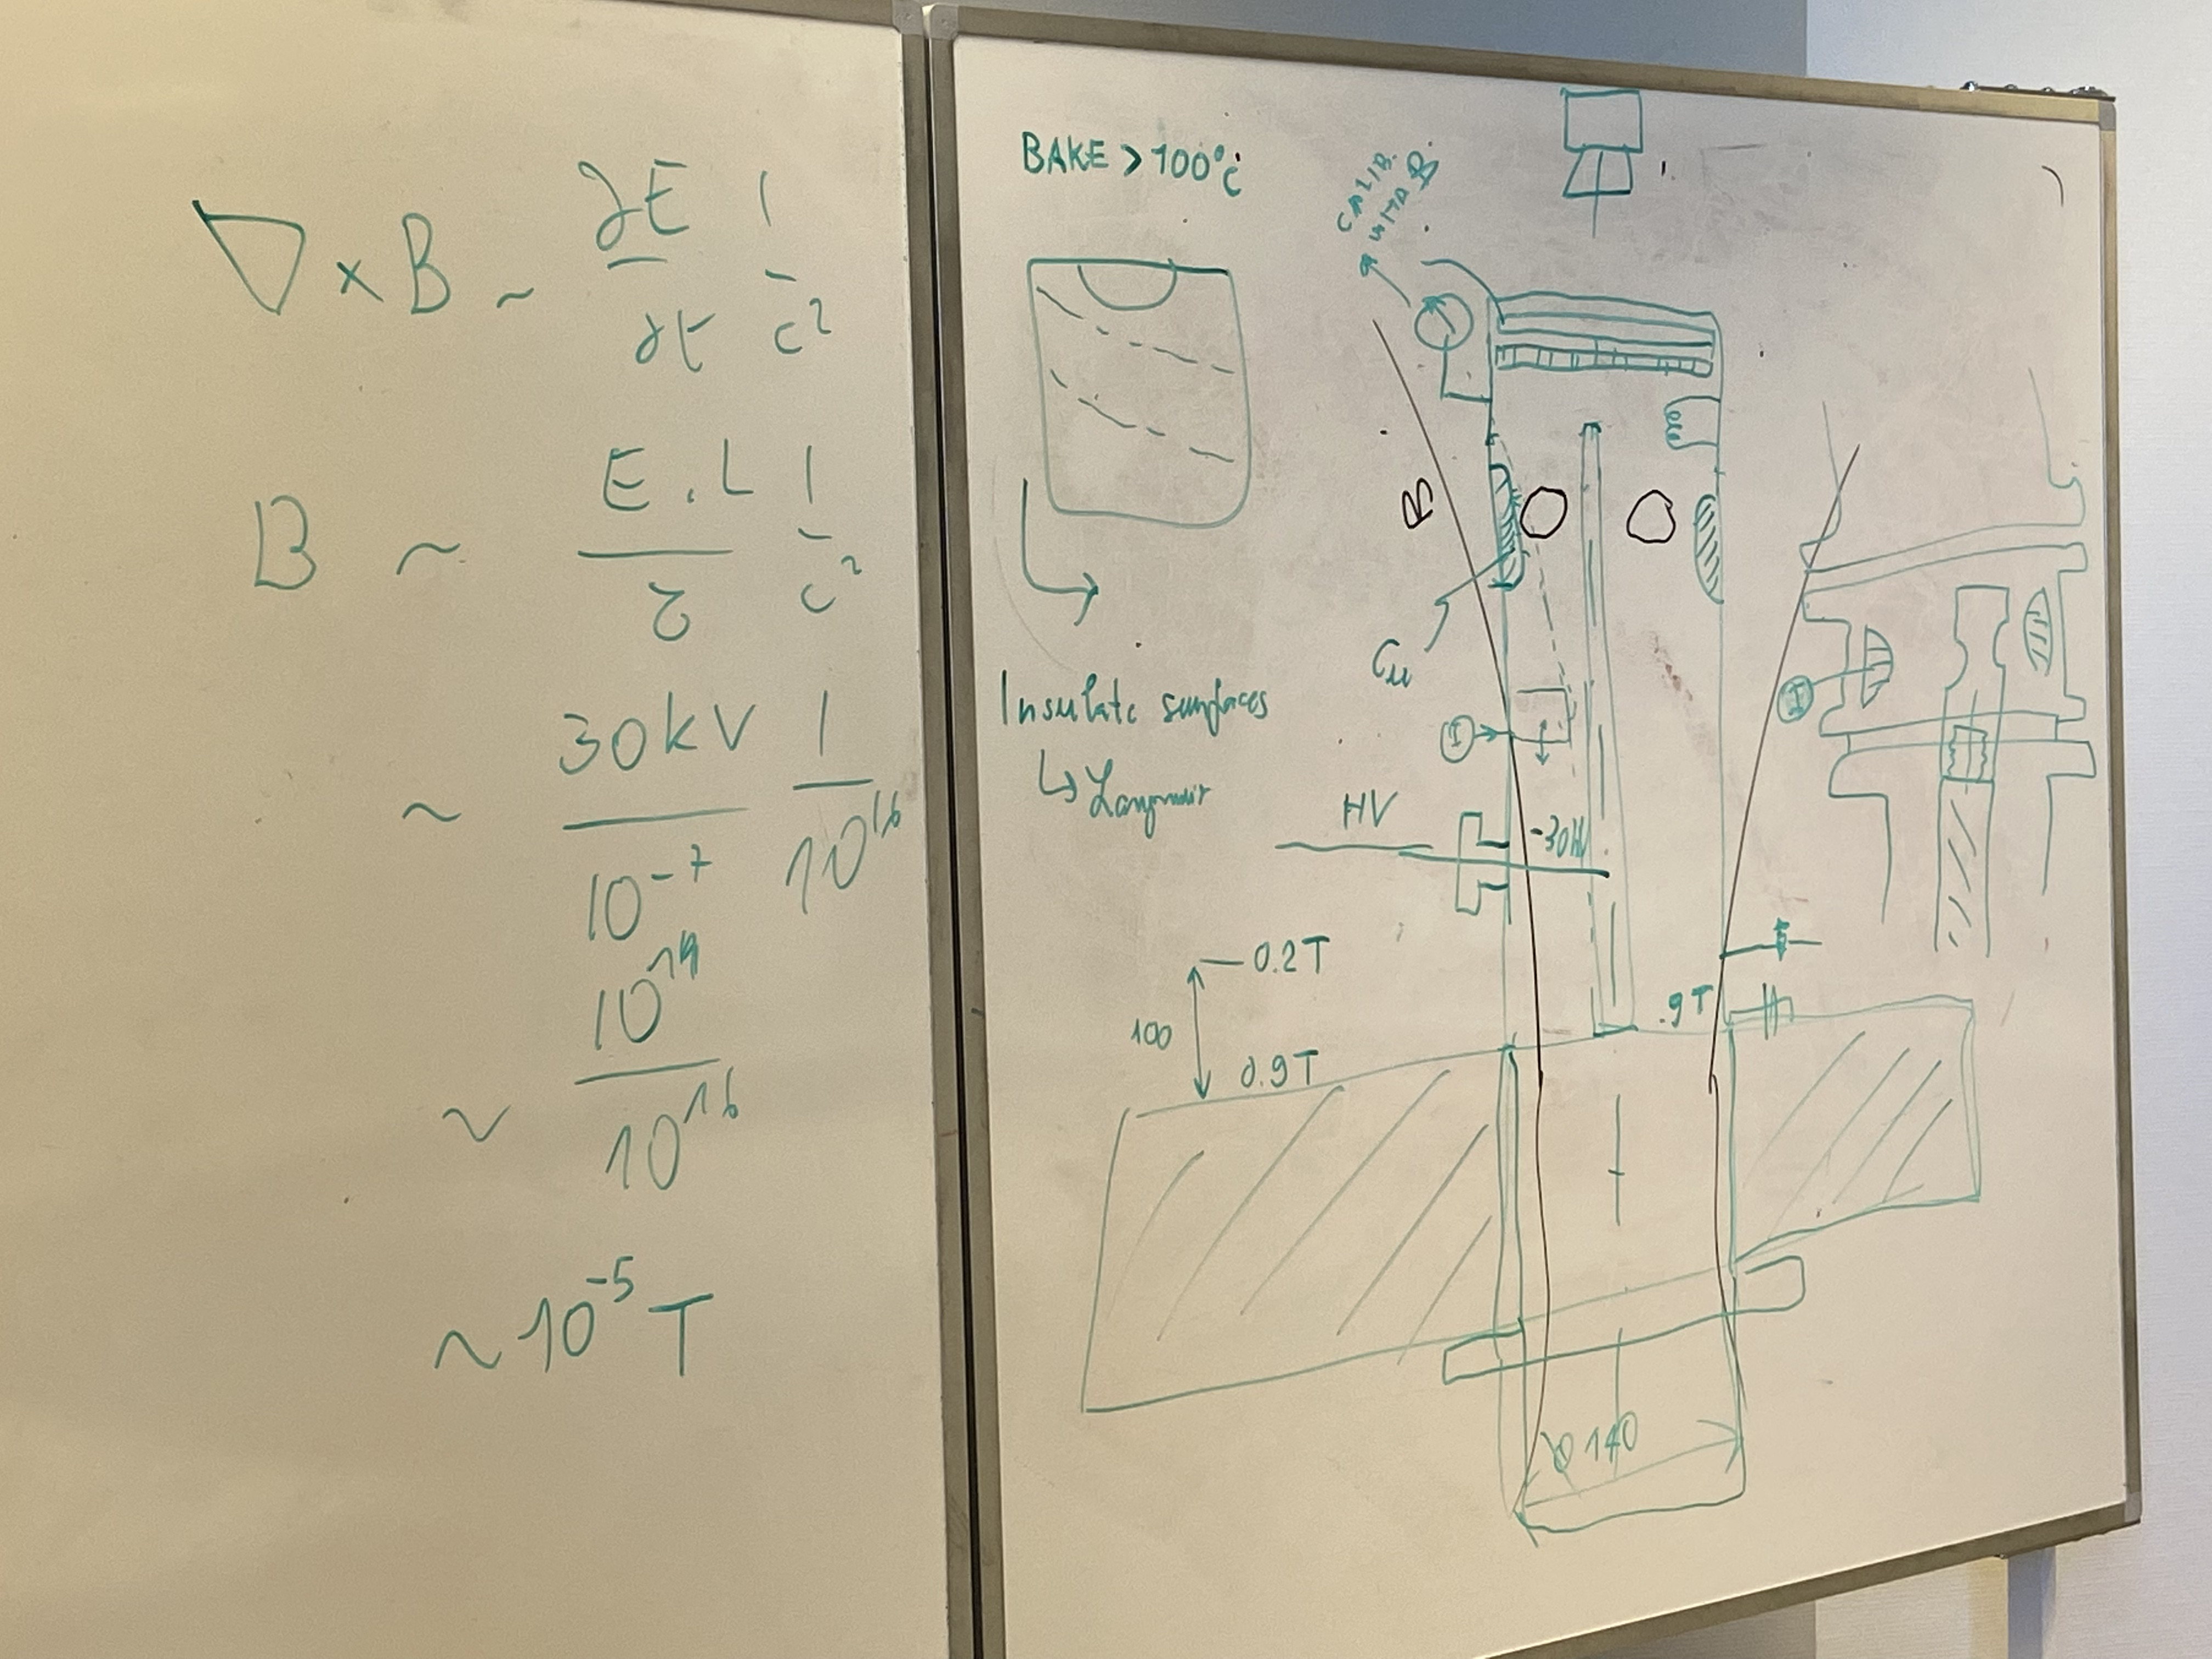 ∇ × B ~ ∂E/∂t 1/c²
B ~ E . L/τ 1/c²
~ 30kV/10⁻⁷ 1/10¹⁶
~ 10¹¹/10¹⁶
~ 10⁻⁵ T
BAKE > 100°C
CALIB.
WITH B
B
Cu
I
I
Insulate surfaces
↳ Langmuir
HV
-30kV
0.2T
100
0.9T
.9T
Ø 140